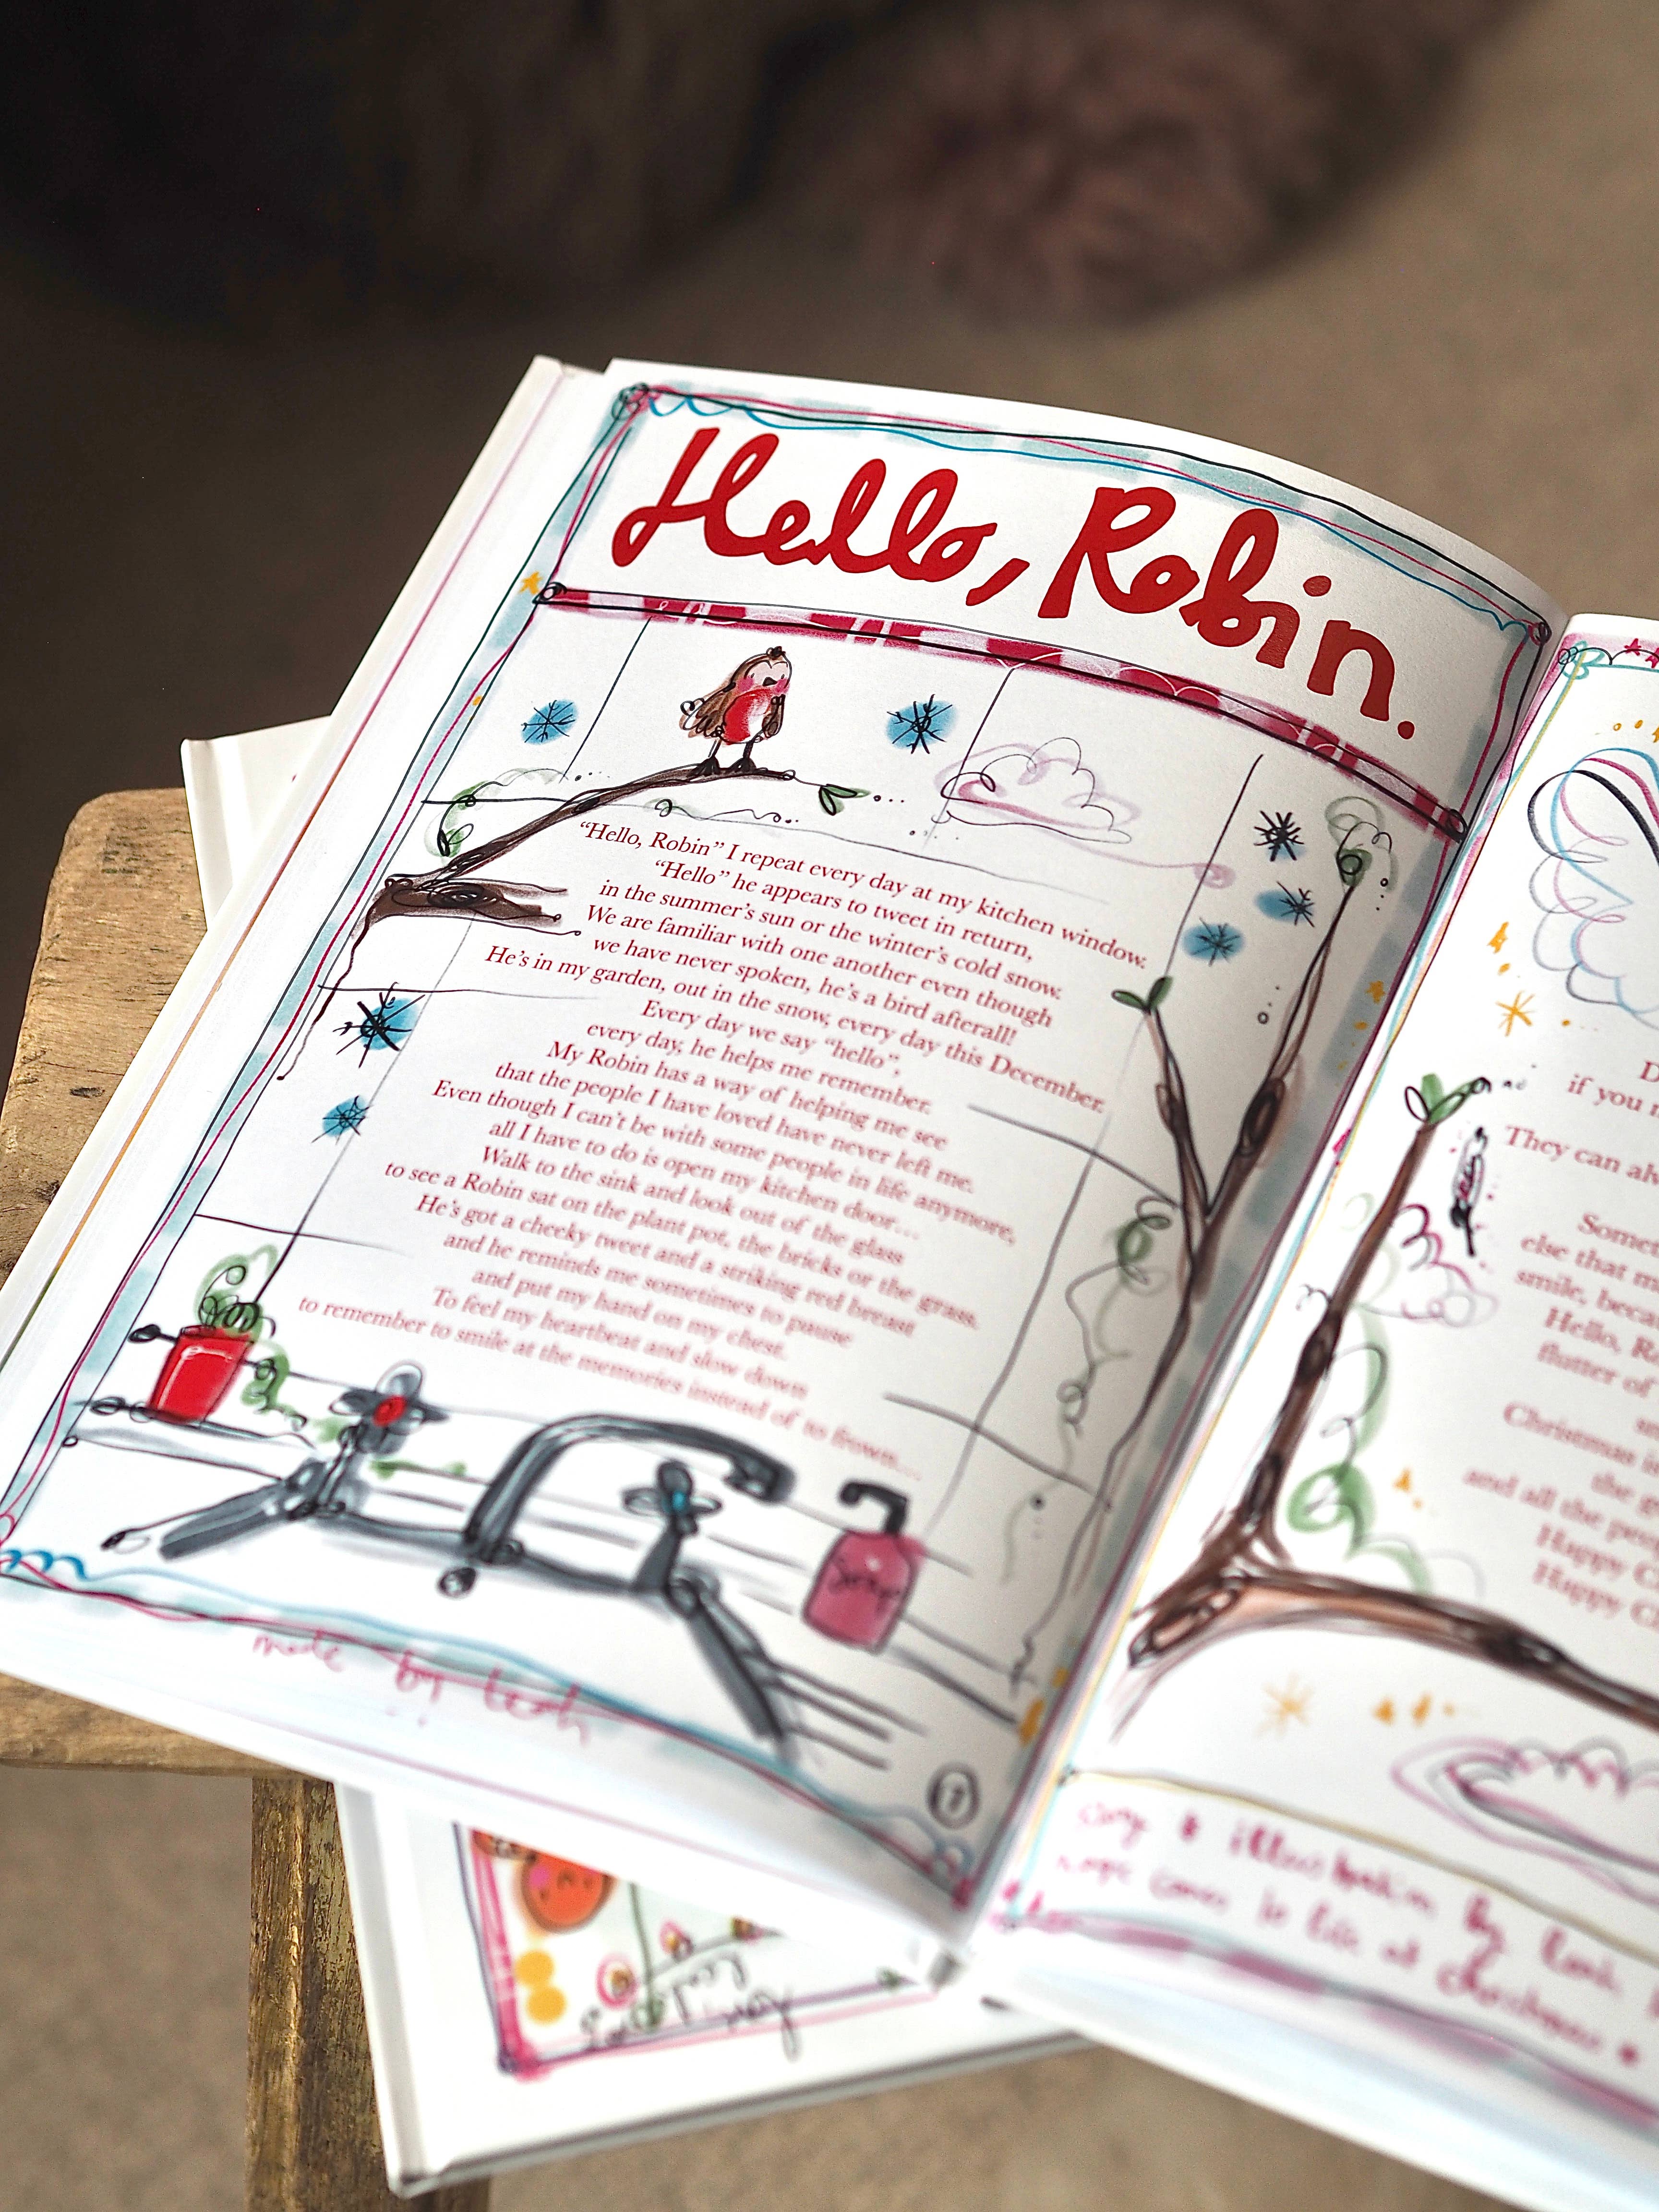 Hello, Robin.
“Hello, Robin” I repeat every day at my kitchen window.
“Hello” he appears to tweet in return,
in the summer’s sun or the winter’s cold snow.
We are familiar with one another even though
we have never spoken, he’s a bird afterall!
He’s in my garden, out in the snow, every day this December.
Every day we say “hello”,
every day, he helps me remember.
My Robin has a way of helping me see
that the people I have loved have never left me.
Even though I can’t be with some people in life anymore,
all I have to do is open my kitchen door…
Walk to the sink and look out of the glass
to see a Robin sat on the plant pot, the bricks or the grass.
He’s got a cheeky tweet and a striking red breast
and he reminds me sometimes to pause
and put my hand on my chest.
To feel my heartbeat and slow down
to remember to smile at the memories instead of to frown…
Soap
made by leah
17
if you
They can
else that
smile,
Hello,
flutter of
Christmas
and all the
Happy
Happy
& illustration by leah
comes to life at christmas